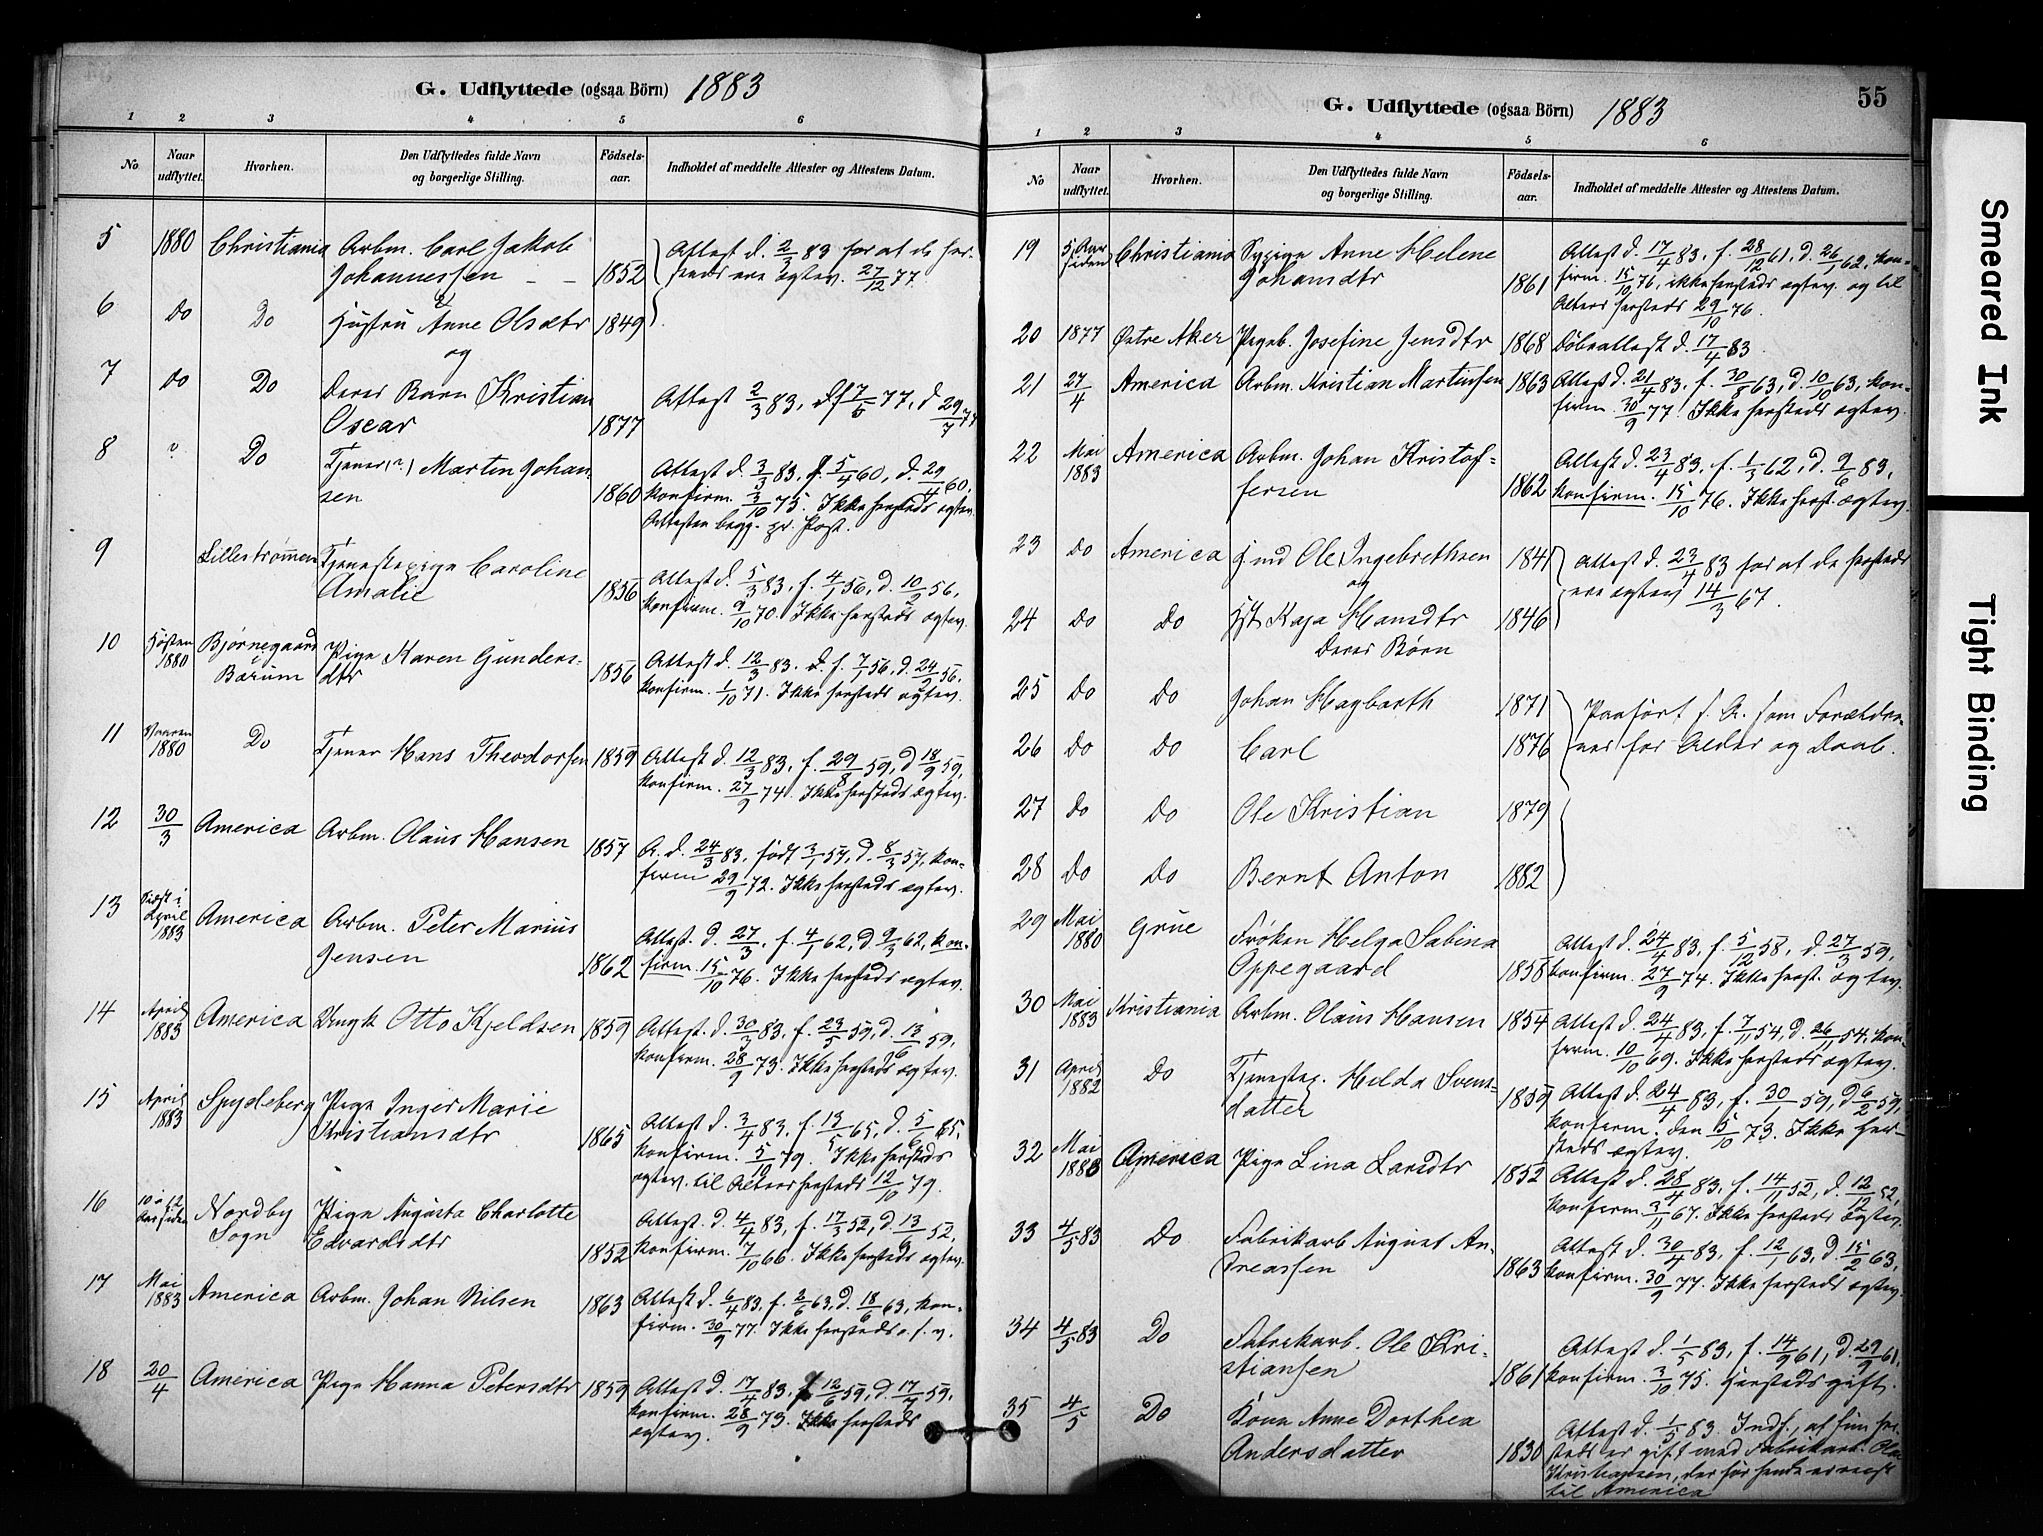 G. Udflyttede (ogsaa Börn) 1883
1 2 3 4 5 6
No
Naar udflyttet.
Hvorhen.
Den Udflyttedes fulde Navn og borgerlige Stilling.
Födsels-aar.
Indholdet af meddelte Attester og Attestens Datum.
5 1880 Christiania Arbm. Carl Jakob
Johannessen 1852 Attest d. 2/3 83 for at de her-
steds ere ægtev. 27/12 77.
&
6 Do Do Hustru Anne Olsdtr 1849
og
7 Do Do Deres Barn Kristian
Oscar 1877 Attest 2/3 83, f 7/5 77, d 29/7 77
8 " Do Tjener (?) Martin Johan-
sen 1860 Attest d. 3/3 83, f. 5/4 60, d. 29/4 60,
konfirm. 3/10 75. Ikke hersteds ægtev.
Attesten begj. pr. Post.
9 Lillestrømmen Tjenestepige Caroline
Amalie 1856 Attest d. 5/3 83, f. 4/1 56, d. 10/2 56,
konfirm. 9/10 70. Ikke hersteds ægtev.
10 Høsten 1880 Bjørnegaard i Bærum Pige Karen Gunders-
dtr 1856 Attest d. 12/3 83. d. f. 7/1 56, d. 24/2 56,
konfirm. 1/10 71. Ikke hersteds ægtev.
11 Vaaren 1880 Do Tjener Hans Theodorsen 1859 Attest d. 12/3 83, f. 29/8 59, d 18/9 59,
konfirm. 27/9 74. Ikke hersteds ægtev.
12 30/3 America Arbm. Olaus Hansen 1857 A. d. 24/3 83, født 3/1 57, d. 8/3 57, kon-
firm 29/9 72. Ikke hersteds ægtev.
13 Først i April 1883 America Arbm. Peter Marius
Jensen 1862 Attest. d. 27/3, f. 4/1 62, d. 9/3 62, kon-
firm. 15/10 76. Ikke hersteds ægtev.
14 April 1883 America Ungk Otto Kjeldsen 1859 Attest. d. 30/3 83, f. 23/5 59, d. 13/6 59,
konfirm. 28/9 73. Ikke hersteds ægtev.
15 April 1883 Spydeberg Pige Inger Marie
Kristiansdtr 1865 Attest d. 3/4 83, f. 13/5 65, d. 5/6 65,
konfirm. 5/10 79. Ikke hersteds
ægtev. til Alters hersteds 12/10 79.
16 10 à 12 Aar siden Nordby Sogn Pige Augusta Charlotte
Edvardsdtr 1852 Attest. d. 4/4 83, f. 17/3 52, d. 13/6 52,
konfirm. 7/10 66. Ikke hersteds ægtev.
17 Mai 1883 America Arbm. Johan Nilsen 1863 Attest d. 6/4 83, f. 2/6 63, d. 18/6 63, kon-
firm. 30/9 77. Ikke hersteds æ. f. v.
18 20/4 America Pige Hanna Petersdtr 1859 Attest d. 17/4 83, f. 12/6 59, d. 17/7 59,
konfirm. 28/9 73. Ikke hersteds
ægtev.
G. Udflyttede (ogsaa Börn) 1883
55
1 2 3 4 5 6
No
Naar udflyttet.
Hvorhen.
Den Udflyttedes fulde Navn og borgerlige Stilling.
Födsels-aar.
Indholdet af meddelte Attester og Attestens Datum.
19 5 Aar siden Christiania Sypige Anne Helene
Johansdtr 1861 Attest d. 17/4 83, f. 28/12 61, d. 26/1 62, kon-
firm. 15/10 76, ikke hersteds ægtev. og til
Alters hersteds 29/10 76.
20 1877 Østre Aker Pigeb. Josefine Jensdtr 1868 Døbeattest d. 17/4 83.
21 27/4 America Arbm. Kristian Martinsen 1863 Attest d. 21/4 83, f. 30/8 63, d. 10/10 63, kon-
firm. 30/9 77. Ikke hersteds ægtev.
22 Mai 1883 America Arbm. Johan Kristof-
fersen 1862 Attest d. 23/4 83, f. 1/3 62, d. 9/6 83,
konfirm. 15/10 76. Ikke herst. ægtev.
23 Do America Ole Ingebrethsen 1841 Attest d. 23/4 83 for at de hersteds
ere ægtev 14/3 67.
og
24 Do Do Hst Kaja Hansdtr 1846
Deres Børn
25 Do Do Johan Hagbarth 1871 Paaført f. A. som Forældre-
26 Do Do Carl 1876 nes for Alder og Daab.
27 Do Do Ole Kristian 1879
28 Do Do Bernt Anton 1882
29 Mai 1880 Grue Frøken Helga Sabina
Oppegaard 1858 Attest d. 24/4 83, f. 5/12 58, d. 27/3 59,
konfirm. 27/9 74. Ikke herst. ægtev.
30 Mai 1883 Kristiania Arbm. Olaus Hansen 1854 Attest d. 24/4 83, f. 7/11 54, d. 26/11 54, kon-
firm. 10/10 69. Ikke hersteds ægtev.
31 April 1882 Do Tjenestep. Helda Svens-
datter 1859 Attest d. 24/4 83, f. 30/1 59, d 6/2 59,
konfirm. den 5/10 73. Ikke her-
steds ægtev.
32 Mai 1883 America Pige Lina Larsdtr 1852 Attest d. 28/4 83, f. 14/11 52, d. 12/12 52,
konfirm. 3/11 67. Ikke hersteds ægtev.
33 4/5 83 Do Fabrikarb August An-
dreassen 1863 Attest d. 30/4 83, f. 12/1 63, d. 15/2 63,
konfirm. 30/9 77. Ikke hersteds ægtev.
34 4/5 83 Do Fabrikarb. Ole Kri-
stiansen 1861 Attest d. 1/5 83, f. 14/9 61, d. 29/9 61,
konfirm. 3/10 75. Hersteds gift.
35 4/5 Do Kone Anne Dorthea
Andersdatter 1830 Attest d. 1/5 83. Indf., at hun her-
steds er gift med Fabrikarb. Ole
Kristiansen, der før hende er reist
til America
Smeared Ink
Tight Binding